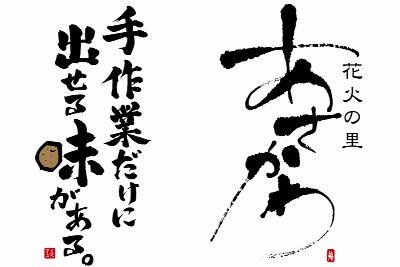 花火の里
あさかわ
手作業だけに
出せる味
がある。